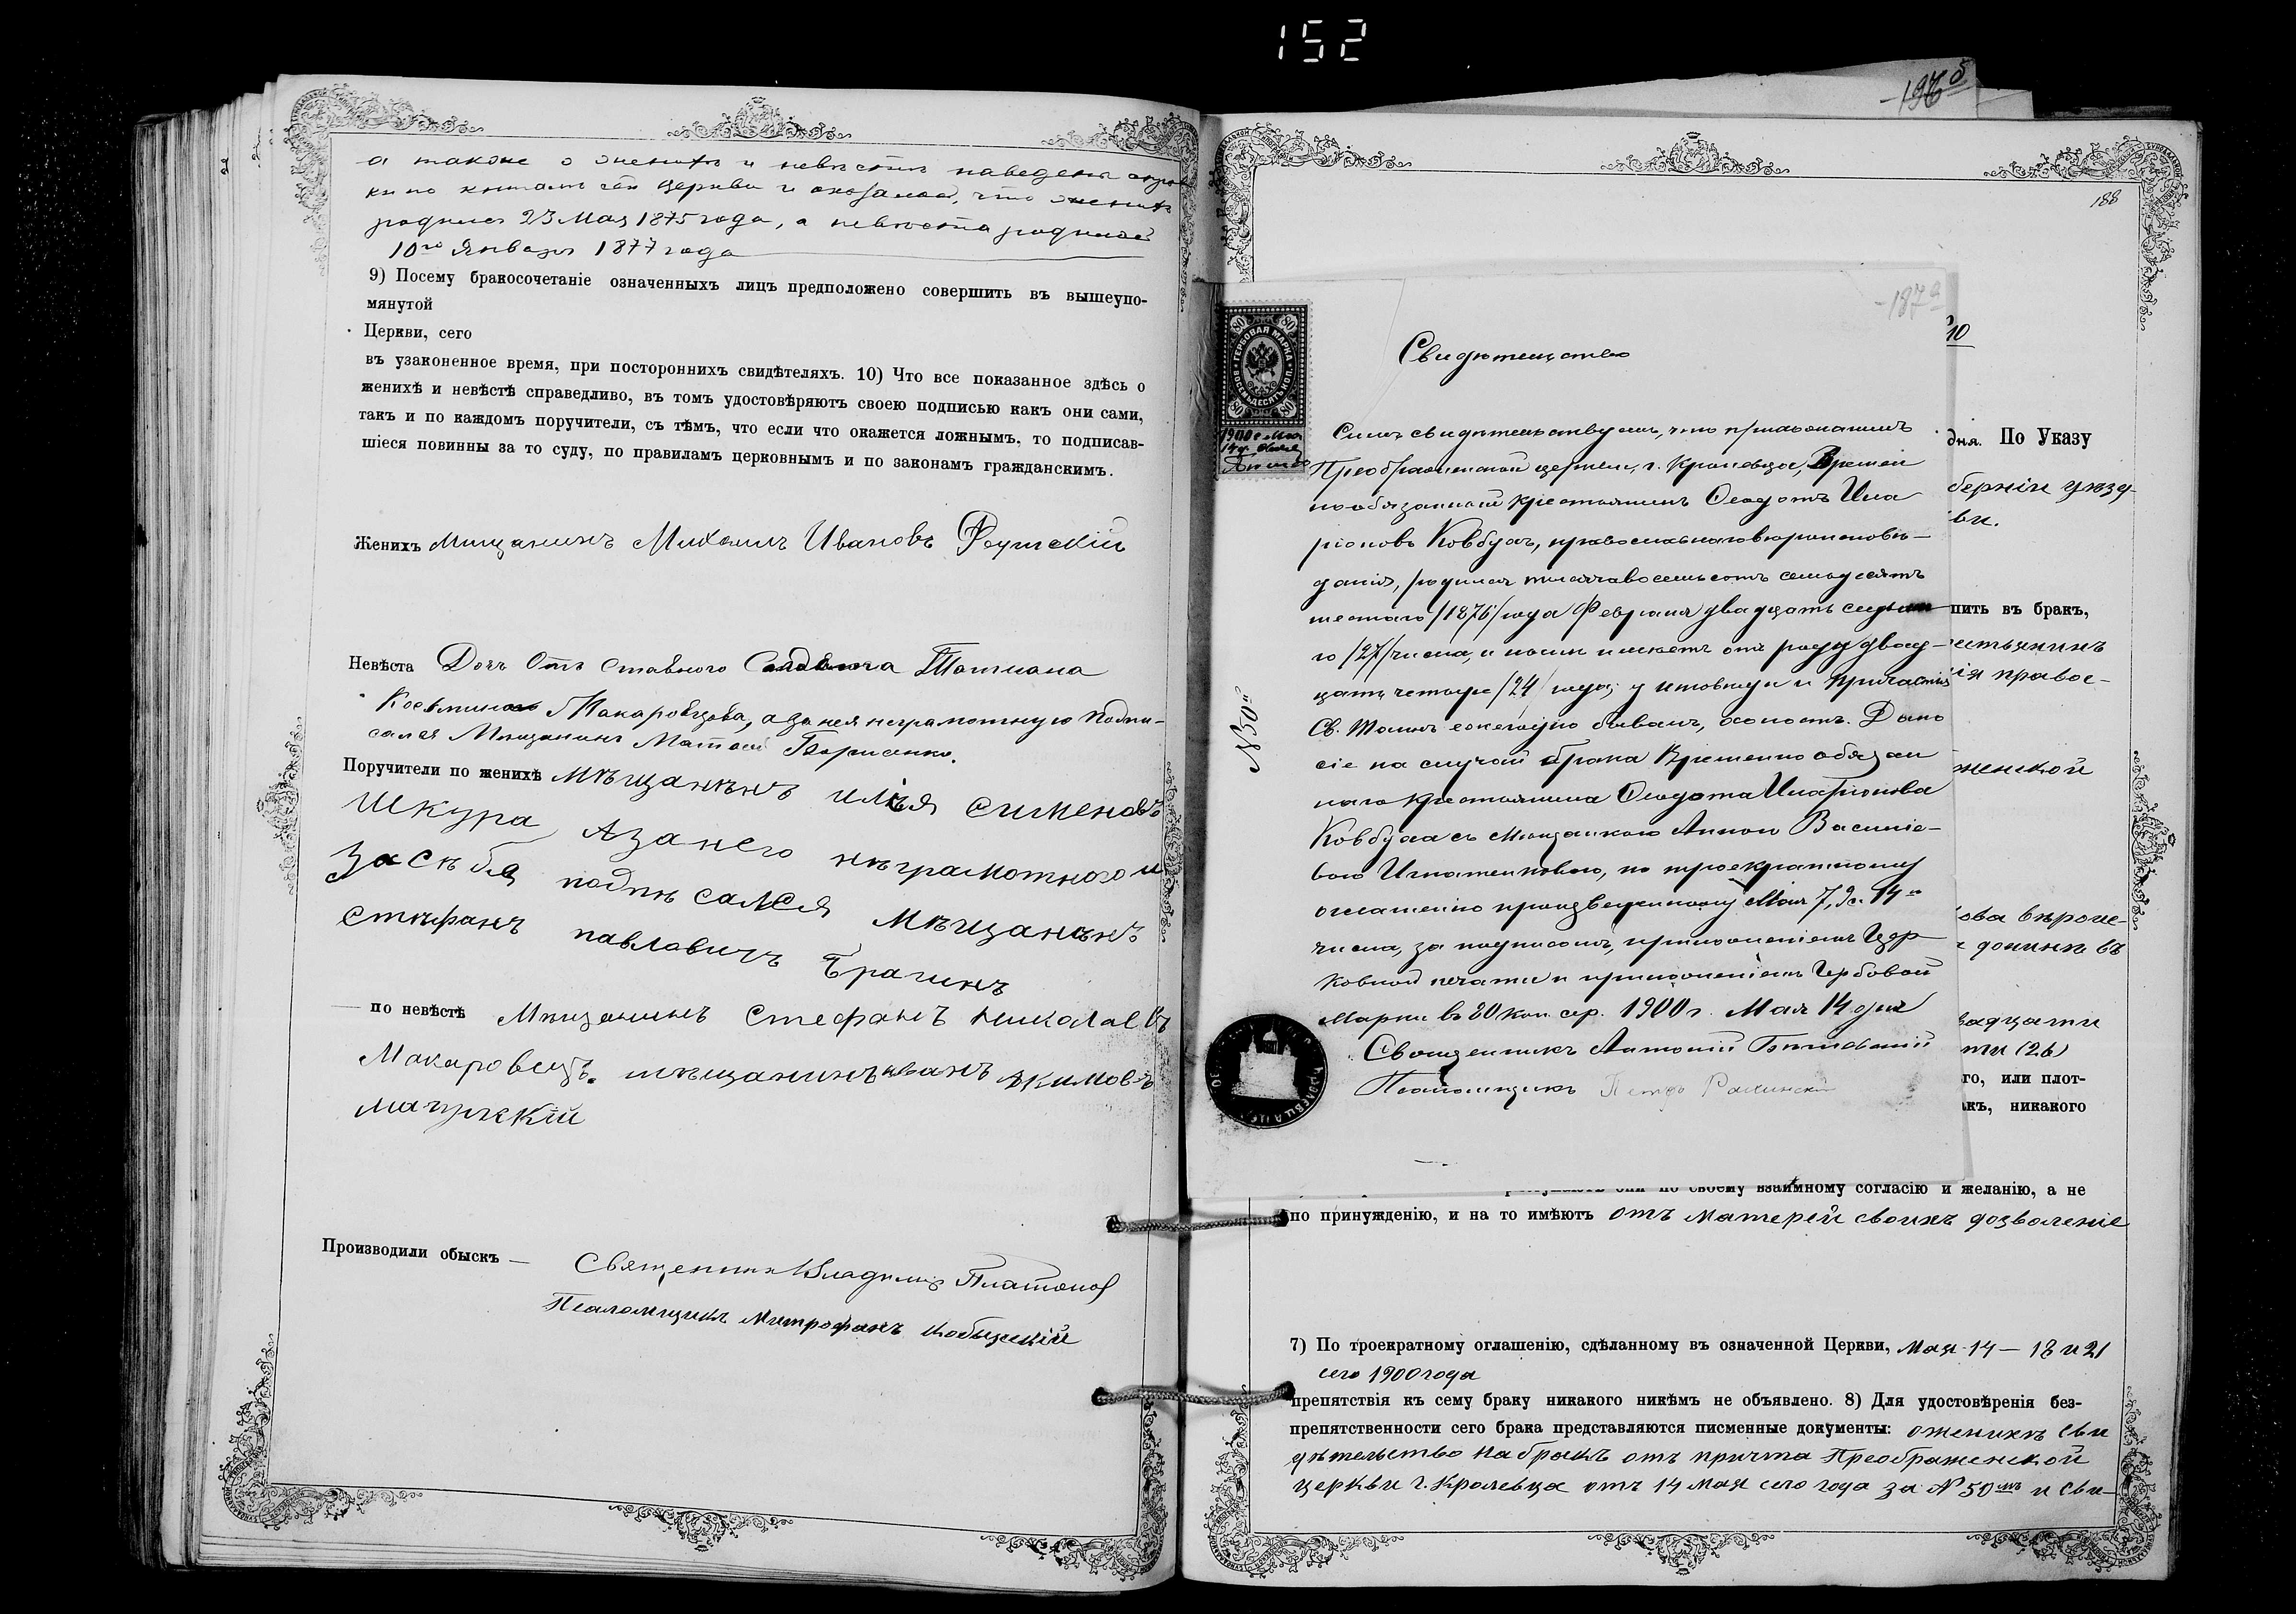 152
а также о женихѣ и невѣстѣ наведены справ
ки по книгамъ сей церкви и оказалось, что женихъ
родился 23 Мая 1875 года, а невѣста родилась
10го Января 1877 года
9) Посему бракосочетаніе означенныхъ лицъ предположено совершить въ вышеупо-
мянутой
Церкви, сего
въ узаконенное время, при постороннихъ свидѣтеляхъ. 10) Что все показанное здѣсь о
женихѣ и невѣстѣ справедливо, въ томъ удостовѣряютъ своею подписью какъ они сами,
такъ и по каждомъ поручители, съ тѣмъ, что если что окажется ложнымъ, то подписав-
шіеся повинны за то суду, по правиламъ церковнымъ и по законамъ гражданскимъ.
Женихъ Мищанинъ Михаилъ Ивановъ
Невѣста Дочь Отъ ставного Татиана
Макаровцова, а за нея неграмотную подпи-
сался Мищанинъ Матвѣй Борисенко.
Поручители по женихѣ Мѣщанѣнъ илѣя сименовъ
шкура Азанего нѣграмотного и
засѣбя подпѣсался мѣщанѣнъ
стѣфанъ павловичъ Брагинъ
по невѣстѣ Мѣщанинъ Стефанъ николаевъ
Макаровецъ. мѣщанинъ иванъ якимовъ
Производили обыскъ — Священникъ Владиміръ Платонов
Псаломщикъ Митрофанъ
196б
188
187а
10
80 80
ГЕРБОВАЯ МАРКА
ВОСЕМЬДЕСЯТЪ КОП.
80 80
1900 г. Мая
14 дня
Свидѣтельство
Симъ свидѣтельствуемъ, что прихожанинъ
Преображенской церкви, г. Кролевца, Времен
нообязанный крестьянинъ Ѳеодотъ Ила
ріоновъ Ковбуса, православнаго вѣроисповѣ-
данія, родился тысяча восемьсотъ семьдесятъ
шестаго /1876/ года Февраля двадцать седьма
го /27/ числа, и нынѣ имѣетъ отъ роду двад-
цать четыре /24/ года; у исповѣди и причастія
Св. Таинъ ежегодно бывалъ, холостъ. Дано
сіе на случай брака Временно обязан
наго крестьянина Ѳеодота Иларіонова
Ковбуса съ Мѣщанкою Анною Василіе-
вою Игнатенковою, по троекратному
оглашенію произведенному Мая 7, 9 и 14го
числа, за подписомъ, приложеніемъ Цер
ковной печати и приложеніемъ Гербовой
Марки въ 80 коп. сер. 1900 г. Мая 14 дня
Священникъ Антоній
Псаломщикъ Петръ
№ 50й
дня. По Указу
берніи уѣзд-
ви.
пить въ бракъ,
естьянинъ
ія правос-
женской
ова вѣрои-
вадцати
ти (26)
го, или плот-
акъ, никакого
они по своему взаимному согласію и желанію, а не
по принужденію, и на то имѣютъ отъ матерей своихъ дозволеніе
7) По троекратному оглашенію, сдѣланному въ означенной Церкви, Мая 14 — 18 и 21
сего 1900 года
препятствія къ сему браку никакого никѣмъ не объявлено. 8) Для удостовѣренія без-
препятственности сего брака представляются писменные документы: о женихѣ Сви
дѣтельство на бракъ отъ причта Преображенской
церкви г. Кролевца отъ 14 мая сего года за № 50мъ и Сви-